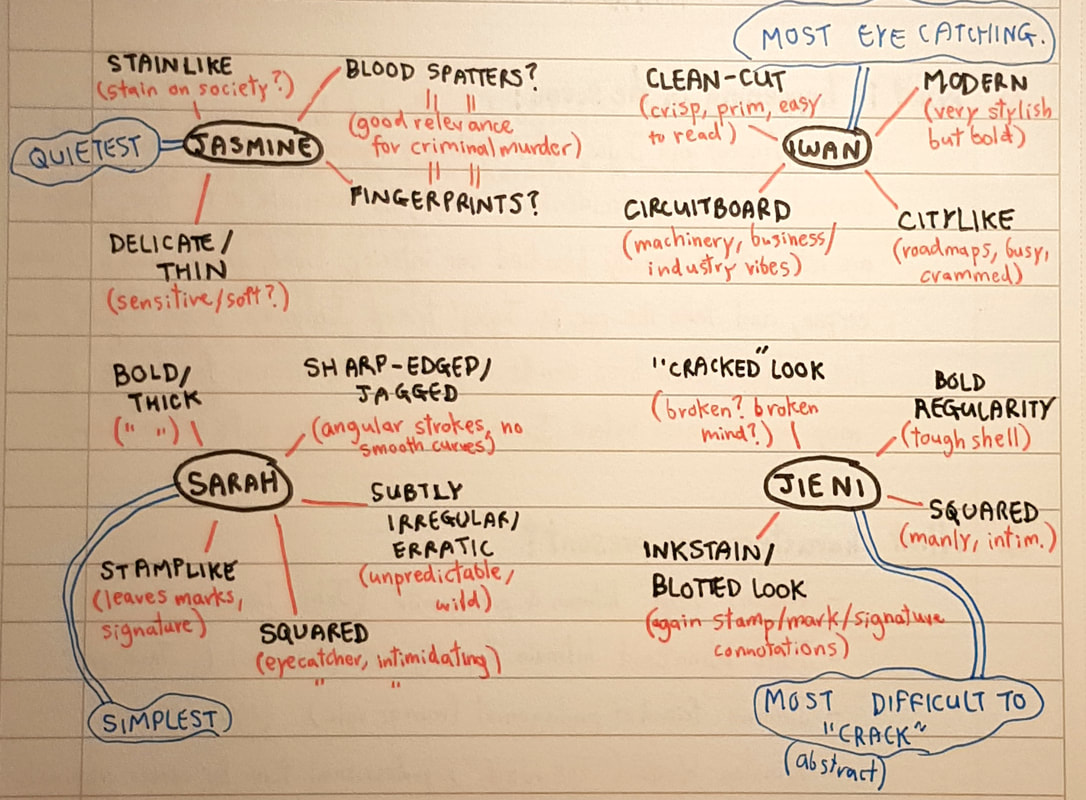 MOST EYE CATCHING.
STAINLIKE
(stain on society?)
BLOOD SPATTERS?
" "
(good relevance
for criminal murder)
" "
FINGERPRINTS?
QUIETEST
JASMINE
DELICATE/
THIN
(sensitive/soft?)
CLEAN-CUT
(crisp, prim, easy
to read)
MODERN
(very stylish
but bold)
IWAN
CIRCUITBOARD
(machinery, business/
industry vibes)
CITYLIKE
(roadmaps, busy,
crammed)
BOLD/
THICK
(" ")
SHARP-EDGED/
JAGGED
(angular strokes, no
smooth curves)
SARAH
SUBTLY
IRREGULAR/
ERRATIC
(unpredictable/
wild)
STAMPLIKE
(leaves marks,
signature)
SQUARED
(eyecatcher, intimidating)
" "
SIMPLEST
"CRACKED" LOOK
(broken? broken
mind?)
BOLD
REGULARITY
(tough shell)
JIENI
SQUARED
(manly, intim.)
INKSTAIN/
BLOTTED LOOK
(again stamp/mark/signature
connotations)
MOST DIFFICULT TO
"CRACK"
(abstract)